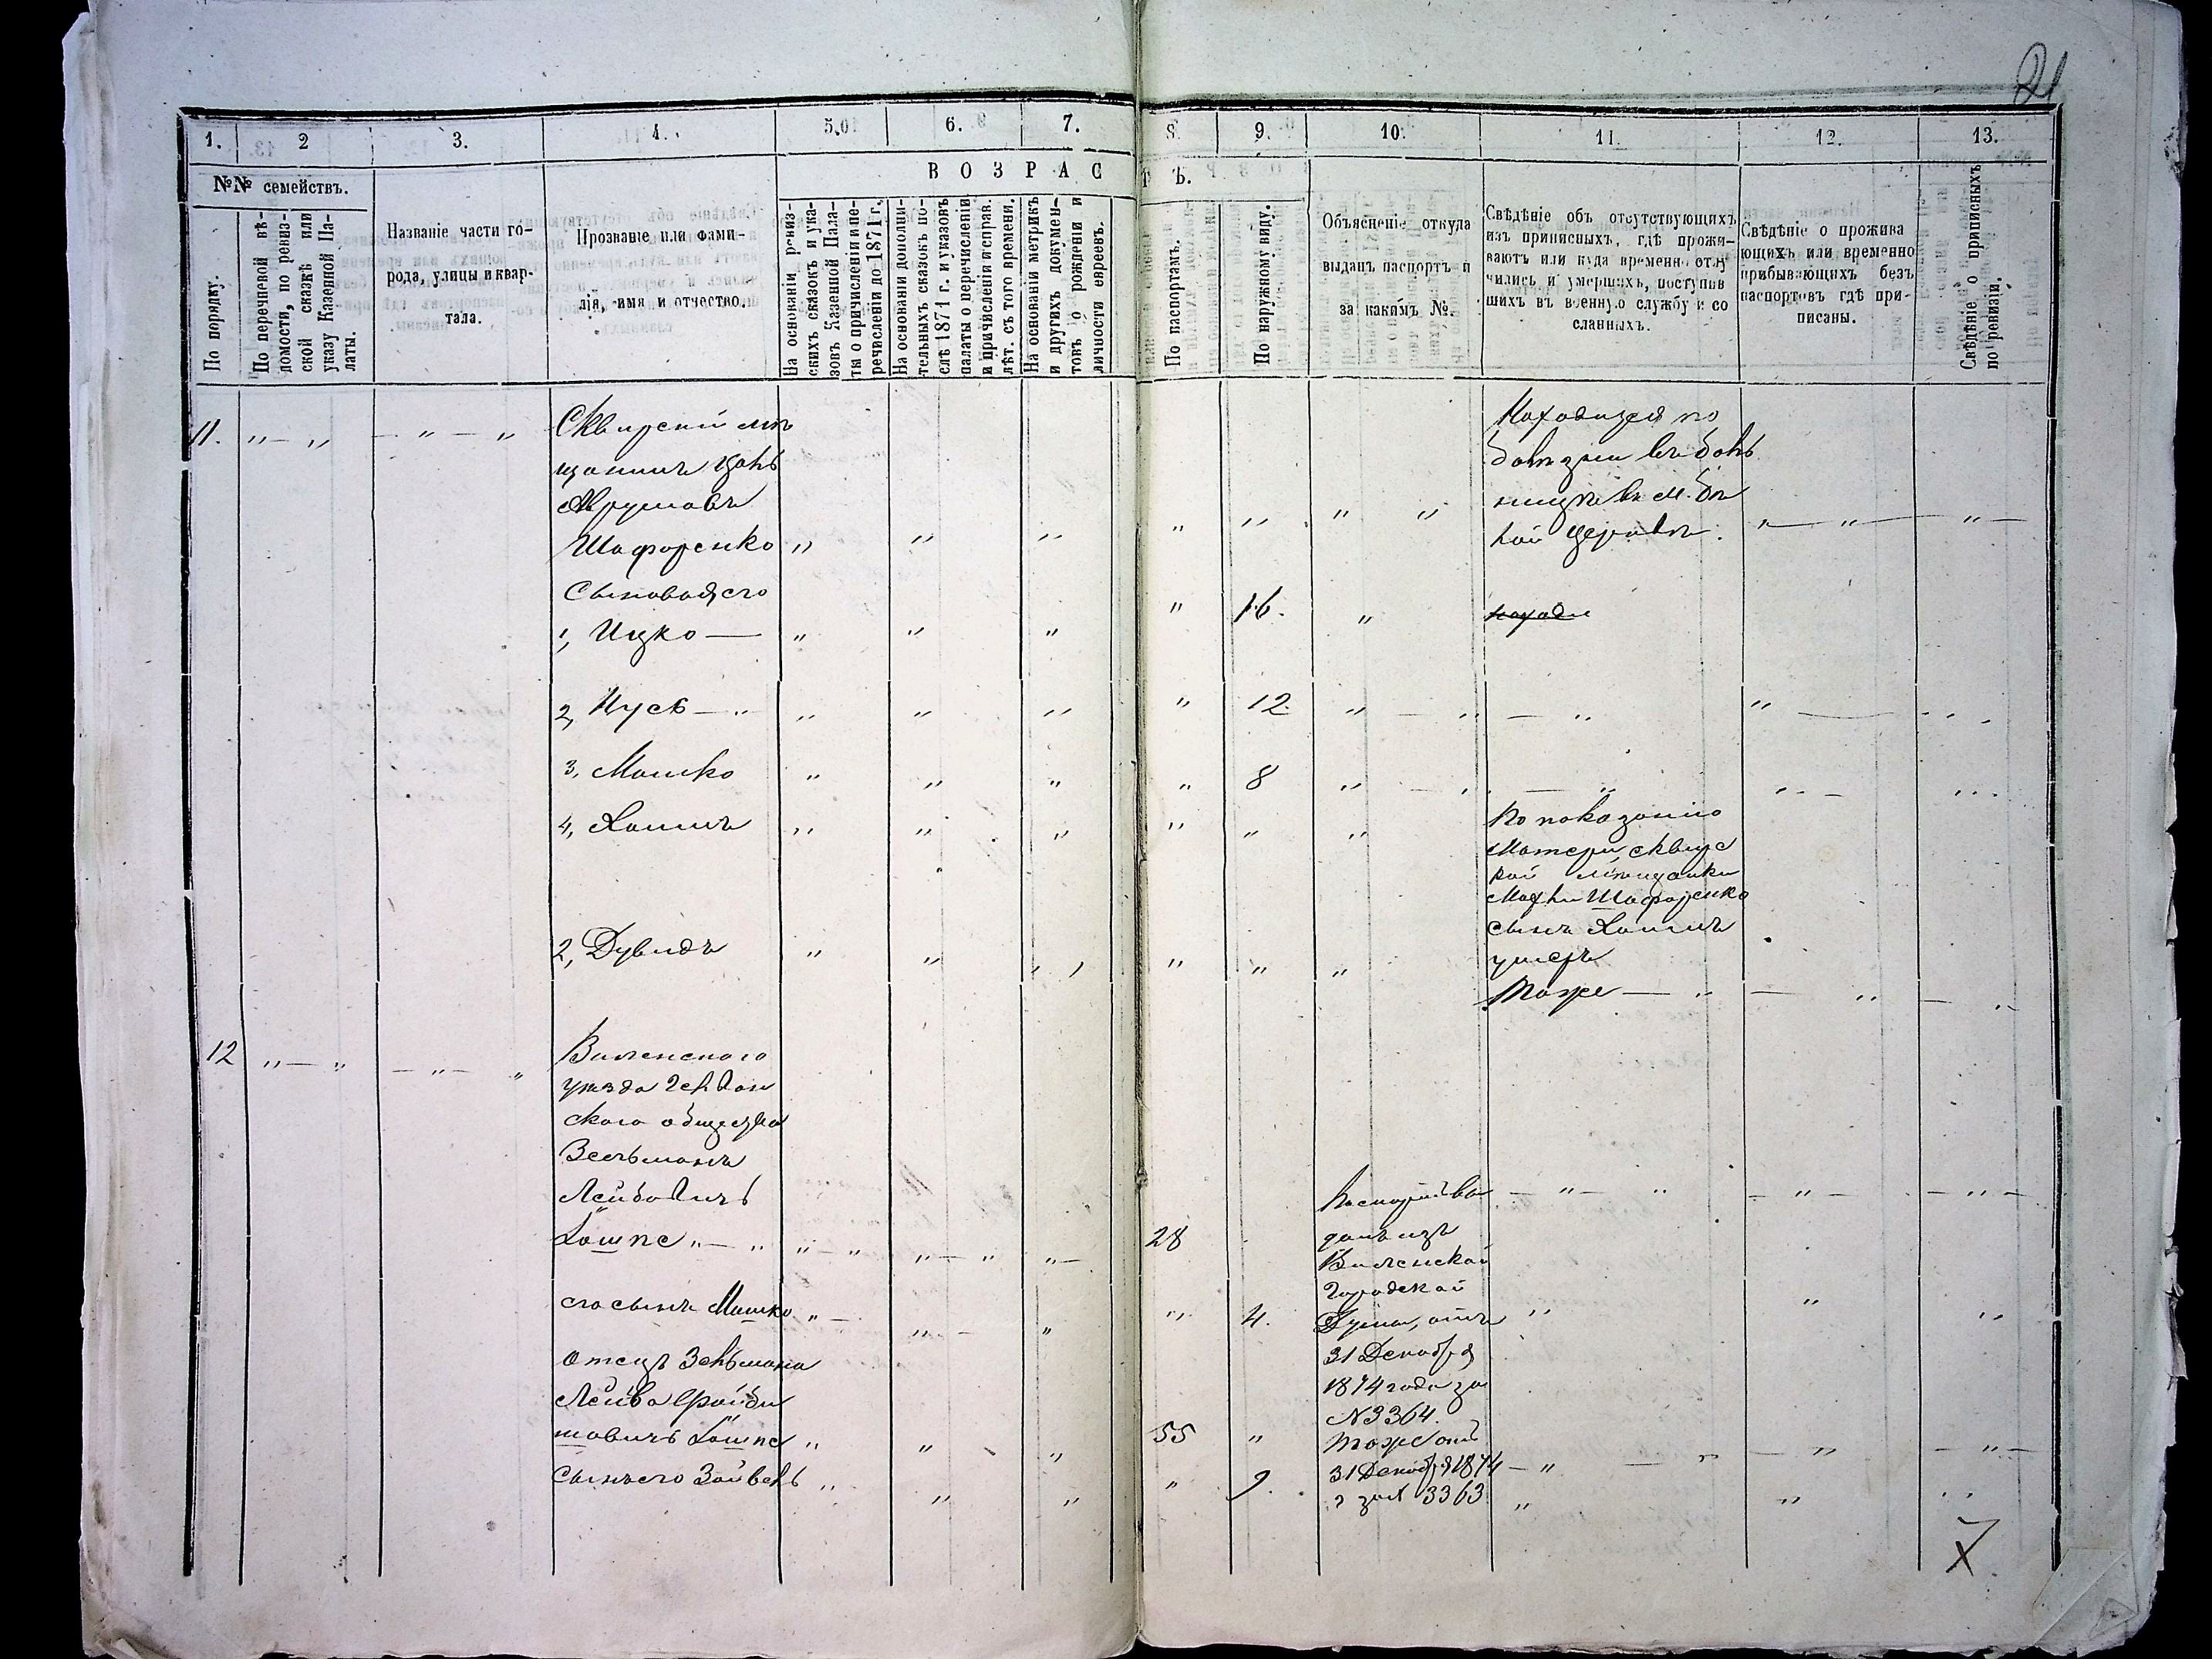 21
1.
2
3.
4.
5.
6.
7.
8.
9.
10.
11.
12.
13.
№№ семействъ.
ВОЗРАС
ТЪ.
По порядку.
По перечневой вѣ-
домости, по ревиз-
ской сказкѣ или
указу Казенной Па-
латы.
Названіе части го-
рода, улицы и квар-
тала.
Прозваніе или фами-
лія, имя и отчество.
На основаніи ревиз-
скихъ сказокъ и ука-
зовъ Казенной Пала-
ты о причисленіи и пе-
речисленіи до 1871 г.
На основаніи дополни-
тельныхъ сказокъ по-
слѣ 1871 г. и указовъ
палаты о перечисленіи
и причисленіи и справ.
лѣт. съ того времени.
На основаніи метрикъ
и другихъ докумен-
товъ о рожденіи и
личности евреевъ.
По паспортамъ.
По наружному виду.
Объясненіе откуда
выданъ паспортъ и
за какимъ №.
Свѣдѣніе объ отсутствующихъ
изъ приписныхъ, гдѣ прожи-
ваютъ или куда временно отлу
чились и умершихъ, поступив
шихъ въ военную службу и со
сланныхъ.
Свѣдѣніе о прожива
ющихъ или временно
прибывающихъ безъ
паспортовъ гдѣ при-
писаны.
Свѣдѣніе о приписныхъ
по ревизіи.
11. „ — „ — „ — „
Сквирскій мѣ
щанинъ
Аврумовъ
Шафоренко „ „ „
Сыновья его
1, Ицко — „ „ „
2, Нусь — „ „ „ „
3, Мошко „ „ „
4, Хаимъ „ „ „
2, Дувидъ „ „ „
„ „ „ „
„ 16. „
„ 12. „ — „ — „ „ —
„ 8 „ — „
„ „ „
„ „ „
Находится по
болѣзни въ боль
ницѣ въ м. Бѣ
лой Церкви. „ — „ — „ —
находи
По показанію
матери, сквирс
кой мѣщанки
Шафоренко
сынъ Хаимъ
умеръ
Тоже — „ — „ — „
12 „ — „ — „ — „
Виленского
уѣзда
ского общества
Зельманъ
Лейбовичъ
Кошпе „ — „ „ — „ „ — „ „ —
его сынъ Мошко „ — „ — „
отецъ Зельмана
Лейба
Кошпе „ „ „
Сынъ его Зайвель „ „ „
28
„ 4.
55 „
„ 9.
Паспортъ вы
данъ изъ
Виленской
Городской
Думы, отъ
31 Декабря
1874 года за
№ 3364.
тоже отъ
31 Декабря 1874
г за № 3363
— „ — „ — „ — — „ —
„ „ „
— „ — „ — „ — — „ —
„ „ „